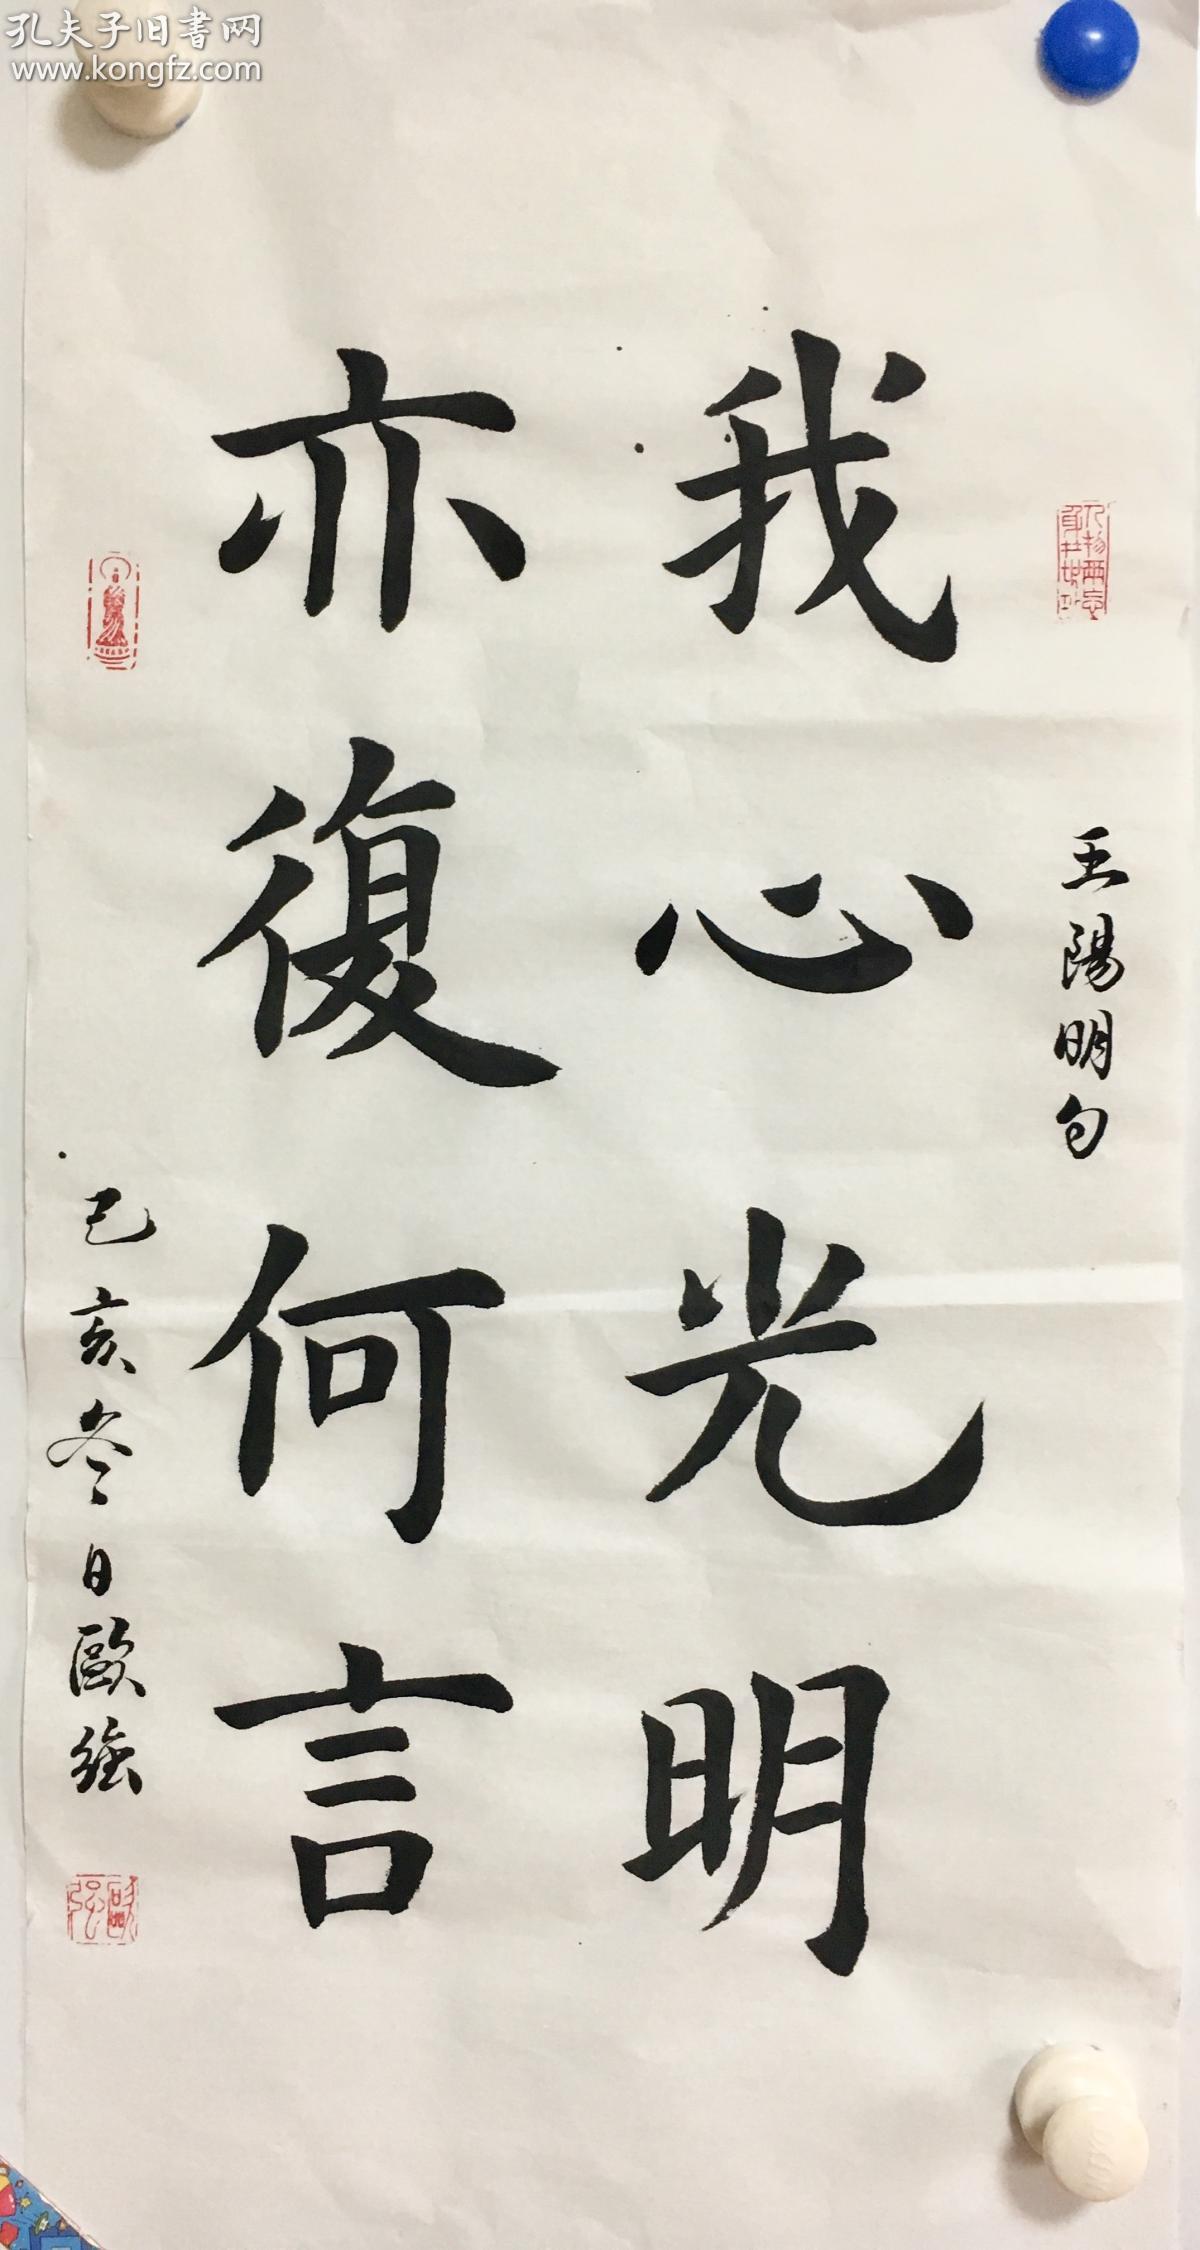 孔夫子旧書网
www.kongfz.com
王陽明句
我心光明
亦復何言
己亥冬日歐強